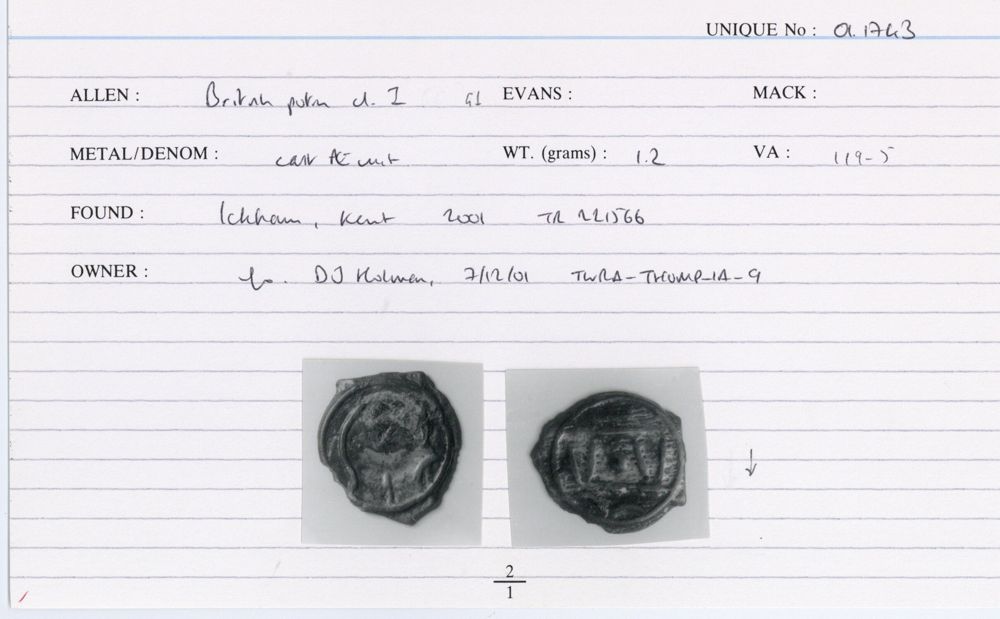 UNIQUE No : 01.1743
ALLEN : British potin cl. I G1 EVANS : MACK :
METAL/DENOM : cast Æ unit WT. (grams) : 1.2 VA : 119-5
FOUND : Ickham, Kent 2001 TR 221566
OWNER : DJ Holman, 7/12/01 TWRA-THOMP-IA-9
2
1